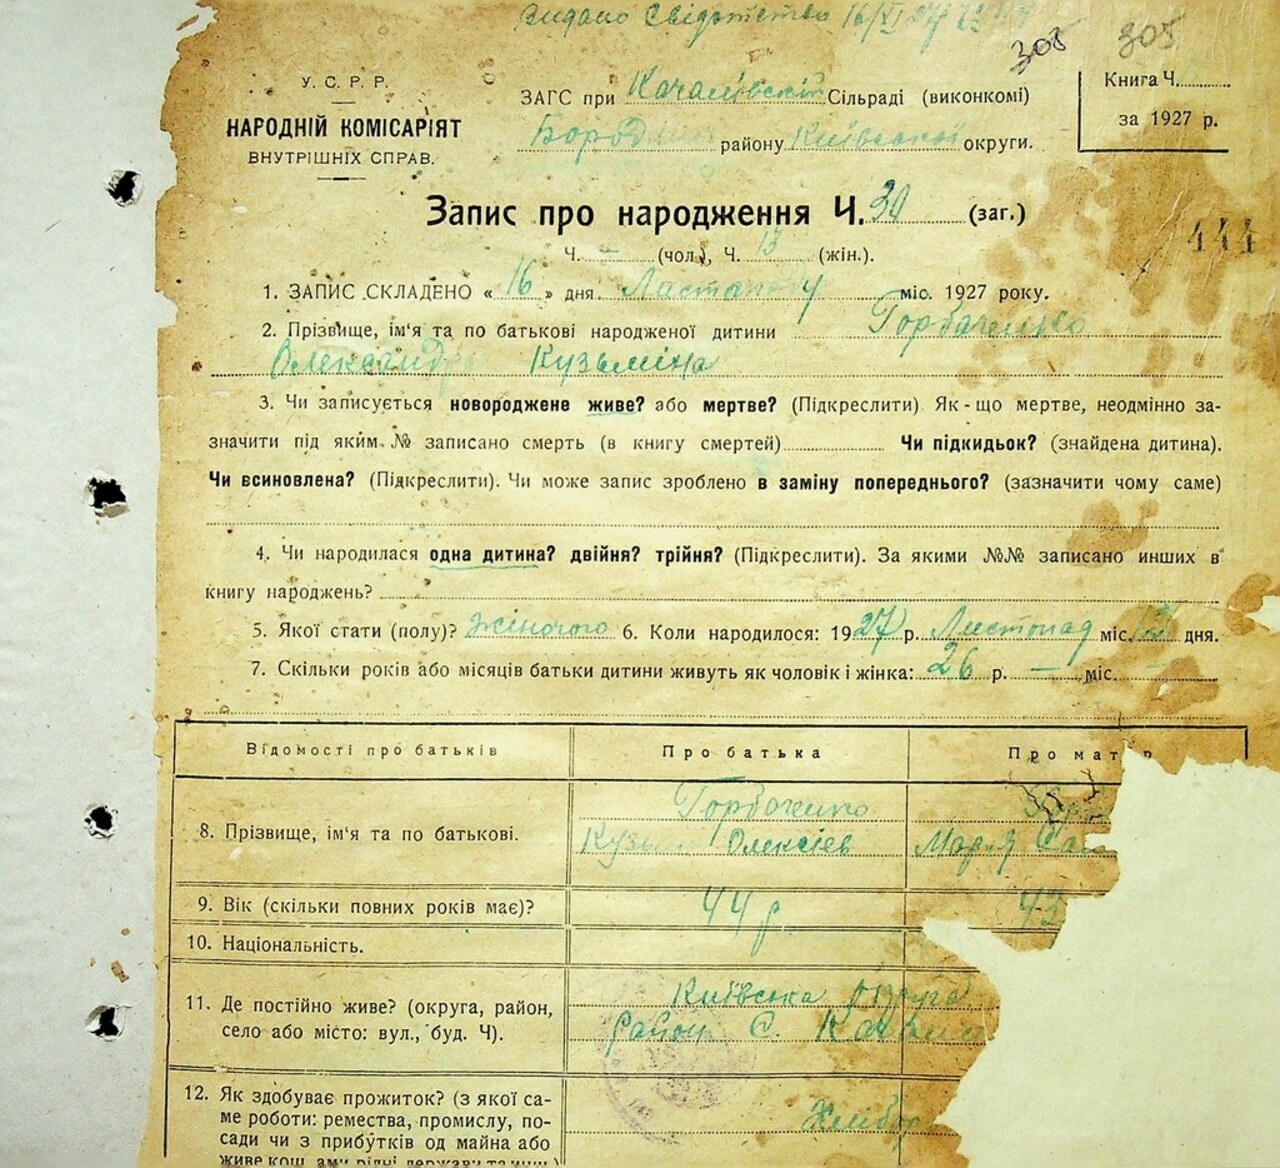 Видано Свідотство 16/XI 27
305 305
У. С. Р. Р.
НАРОДНІЙ КОМІСАРІЯТ
ВНУТРІШНІХ СПРАВ.
ЗАГС при Качалівскій Сільраді (виконкомі)
району Київської округи.
Книга Ч.
за 1927 р.
Запис про народження Ч. 30 (заг.)
Ч. – (чол.), Ч. 13 (жін.).
444
1. ЗАПИС СКЛАДЕНО « 16 » дня міс. 1927 року.
2. Прізвище, ім'я та по батькові народженої дитини Горбаченко
Олександра Кузьміна
3. Чи записується новороджене живе? або мертве? (Підкреслити) Як-що мертве, неодмінно за-
значити під яким № записано смерть (в книгу смертей) Чи підкидьок? (знайдена дитина).
Чи всиновлена? (Підкреслити). Чи може запис зроблено в заміну попереднього? (зазначити чому саме)
4. Чи народилася одна дитина? двійня? трійня? (Підкреслити). За якими №№ записано инших в
книгу народжень?
5. Якої стати (полу)? Жіночого 6. Коли народилося: 1927 р. Листопад міс. дня.
7. Скільки років або місяців батьки дитини живуть як чоловік і жінка: 26 р. — міс. —
Відомості про батьків Про батька Про мат р
8. Прізвище, ім'я та по батькові. Горбаченко
Олексіев Мария
9. Вік (скільки повних років має)? 44 р. 43
10. Національність.
11. Де постійно живе? (округа, район,
село або місто: вул., буд. Ч). Київська округа
район С.
12. Як здобуває прожиток? (з якої са-
ме роботи: ремества, промислу, по-
сади чи з прибутків од майна або